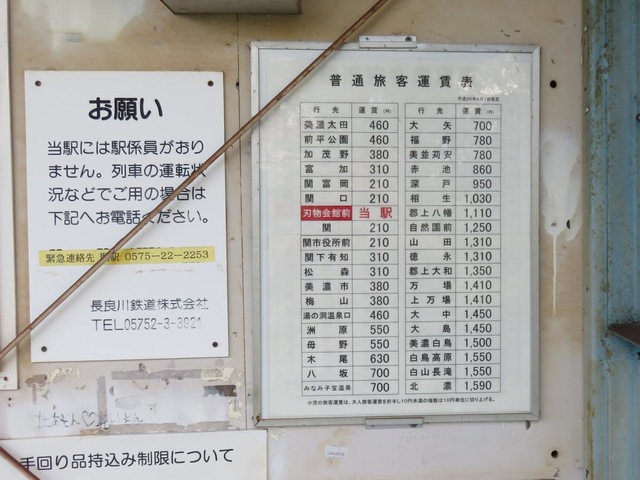 お願い
当駅には駅係員がおり
ません。列車の運転状
況などでご用の場合は
下記へお電話ください。
緊急連絡先 関駅 0575-22-2253
長良川鉄道株式会社
TEL05752-3-3921
手回り品持込み制限について
普通旅客運賃表
行先 運賃(円)
美濃太田 460
前平公園 460
加茂野 380
富加 310
関富岡 210
関口 210
刃物会館前 当駅
関 210
関市役所前 210
関下有知 310
松森 310
美濃市 380
梅山 380
湯の洞温泉口 460
洲原 550
母野 550
木尾 630
八坂 700
みなみ子宝温泉 700
行先 運賃(円)
大矢 700
福野 780
美並苅安 780
赤池 860
深戸 950
相生 1,030
郡上八幡 1,110
自然園前 1,250
山田 1,310
徳永 1,310
郡上大和 1,350
万場 1,410
上万場 1,410
大中 1,450
大島 1,450
美濃白鳥 1,500
白鳥高原 1,550
白山長滝 1,550
北濃 1,590
小児の旅客運賃は、大人旅客運賃を折半し10円未満の端数は10円単位に切り上げる。